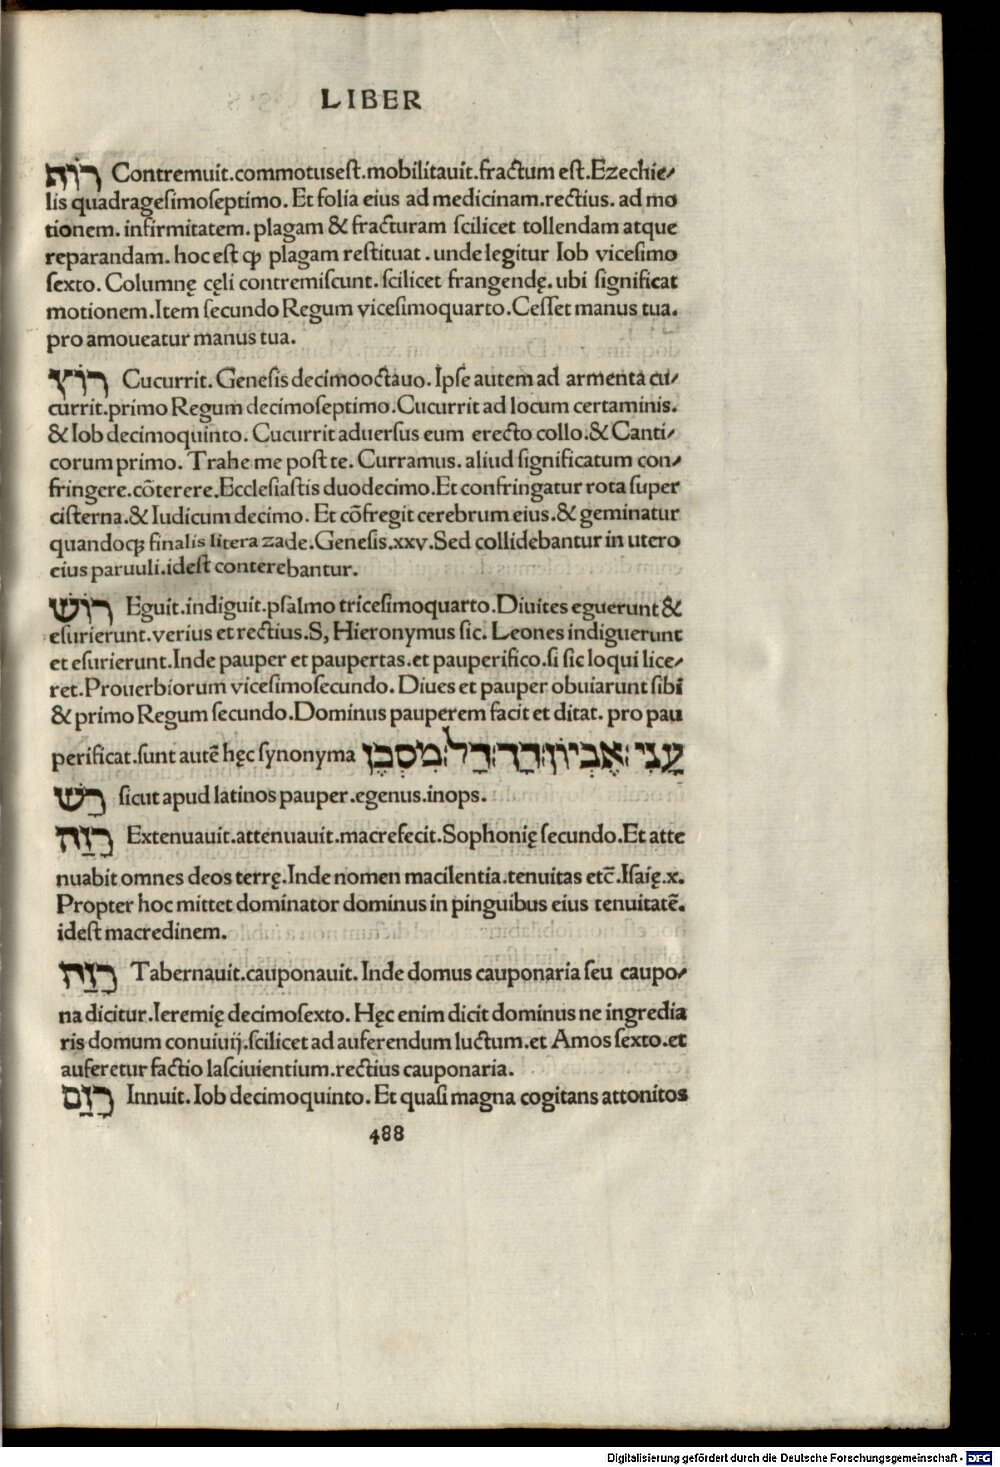 LIBER
רוֹת Contremuit.commotusest.mobilitauit.fractum est.Ezechie/
lis quadragesimoseptimo. Et folia eius ad medicinam.rectius. ad mo
tionem. infirmitatem. plagam & fracturam scilicet tollendam atque
reparandam. hoc est ꝙ plagam restituat . unde legitur Iob vicesimo
sexto. Columnę cęli contremiscunt. scilicet frangendę. ubi significat
motionem.Item secundo Regum vicesimoquarto.Cesset manus tua.
pro amoueatur manus tua.
רוֹץ Cucurrit. Genesis decimooctauo. Ipse autem ad armenta cu/
currit.primo Regum decimoseptimo.Cucurrit ad locum certaminis.
& Iob decimoquinto. Cucurrit aduersus eum erecto collo.& Canti/
corum primo. Trahe me post te. Curramus. aliud significatum con/
fringere.cōterere.Ecclesiastis duodecimo.Et confringatur rota super
cisterna.& Iudicum decimo. Et cōfregit cerebrum eius.& geminatur
quandoqꝫ finalis litera zade.Genesis.xxv.Sed collidebantur in utero
eius paruuli.idest conterebantur.
רוֹשׁ Eguit.indiguit.psalmo tricesimoquarto.Diuites eguerunt &
esurierunt.verius et rectius.S, Hieronymus sic. Leones indiguerunt
et esurierunt.Inde pauper et paupertas.et pauperifico.si sic loqui lice/
ret.Prouerbiorum vicesimosecundo. Diues et pauper obuiarunt sibi
& primo Regum secundo.Dominus pauperem facit et ditat. pro pau
perificat.sunt autē hęc synonyma עָנִי:אֶבְיוֹן:דַּךְ:דַל:מִסְכֶּן
רָשׁ sicut apud latinos pauper.egenus.inops.
רָזַה Extenuauit.attenuauit.macrefecit.Sophonię secundo.Et atte
nuabit omnes deos terrę.Inde nomen macilentia.tenuitas etc̄.Isaię.x.
Propter hoc mittet dominator dominus in pinguibus eius tenuitatē.
idest macredinem.
רָזַח Tabernauit.cauponauit. Inde domus cauponaria seu caupo/
na dicitur.Ieremię decimosexto. Hęc enim dicit dominus ne ingredia
ris domum conuiuij.scilicet ad auferendum luctum.et Amos sexto.et
auferetur factio lasciuientium.rectius cauponaria.
רָזַם Innuit. Iob decimoquinto. Et quasi magna cogitans attonitos
488
Digitalisierung gefördert durch die Deutsche Forschungsgemeinschaft - DFG